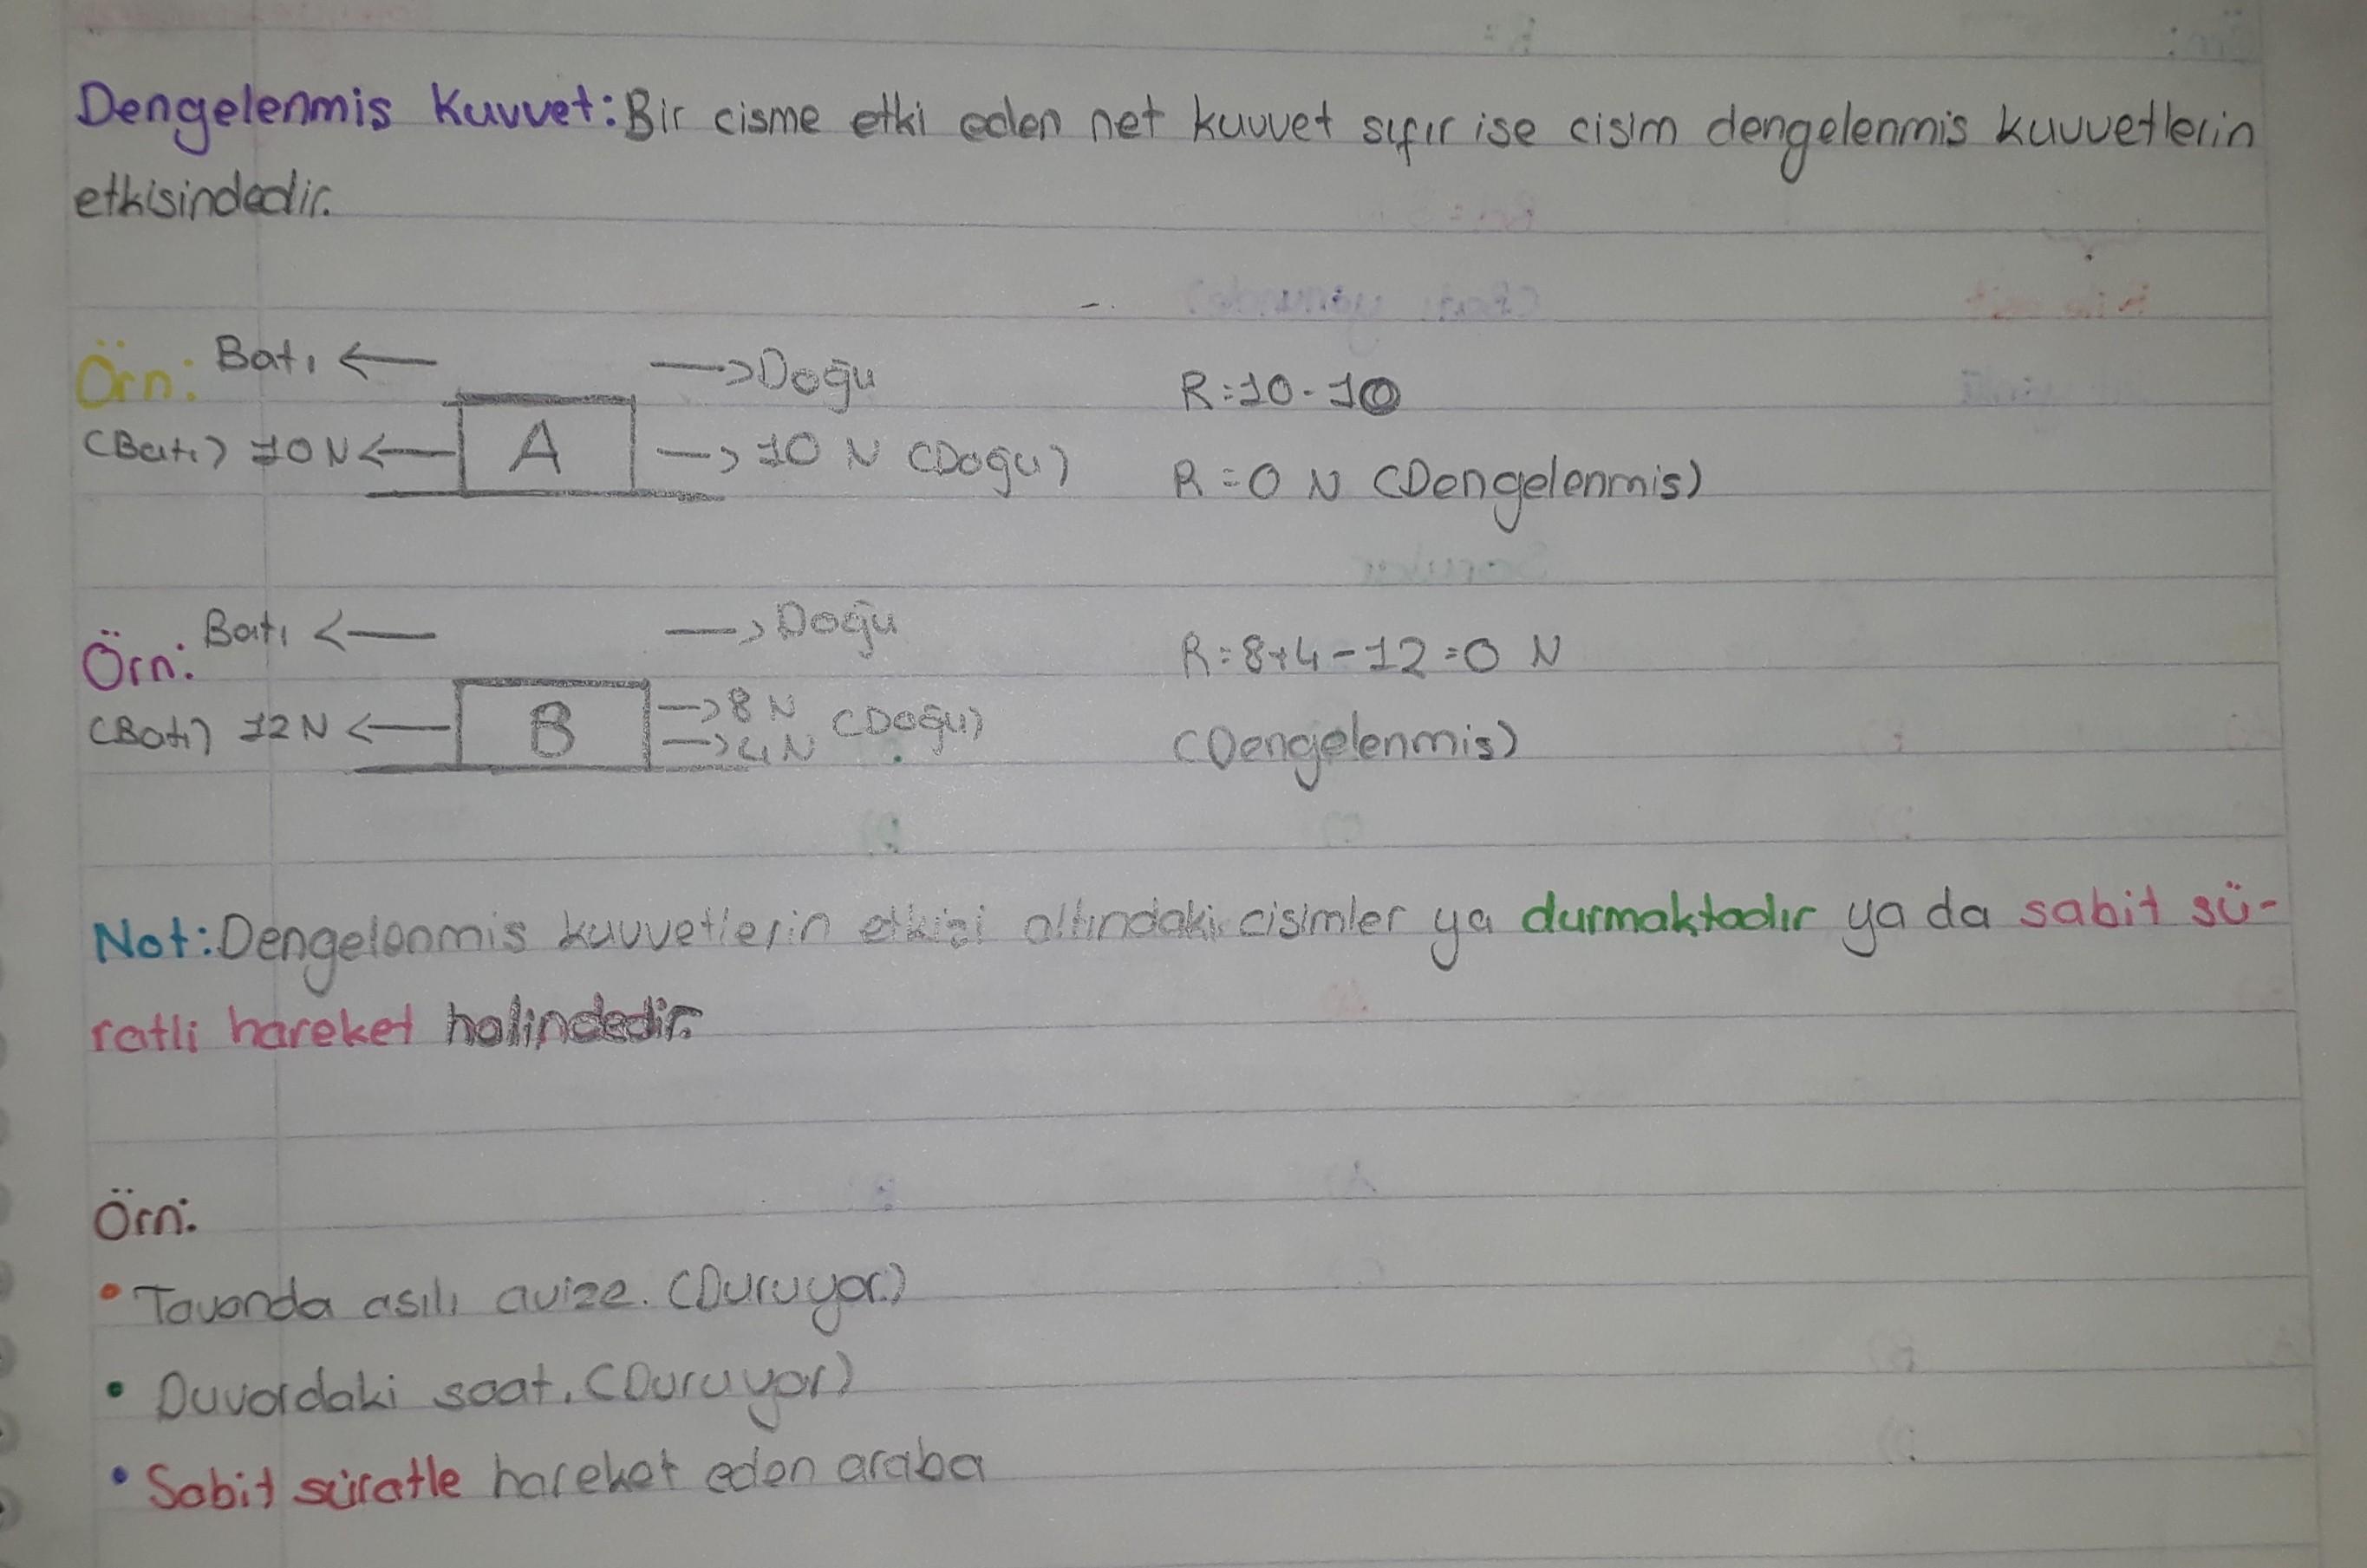 Dengelenmis Kuvvet: Bir cisme etki eden net kuvvet sıfır ise cisim dengelenmis kuvvetlerin
etkisindedir.
Örn: Batı ← → Doğu
R=10-10
(Batı) 10 N ← A → 10 N (Doğu)
R=0 N (Dengelenmis)
Örn: Batı ← → Doğu
R=8+4-12=0 N
(Batı) 12 N ← B → 8 N (Doğu)
→ 4 N
(Dengelenmis)
Not: Dengelenmis kuvvetlerin etkisi altındaki cisimler ya durmaktadır ya da sabit sü-
ratli hareket halindedir.
Örn:
• Tavanda asılı avize. (Duruyor.)
• Duvardaki saat. (Duruyor)
• Sabit süratle hareket eden araba